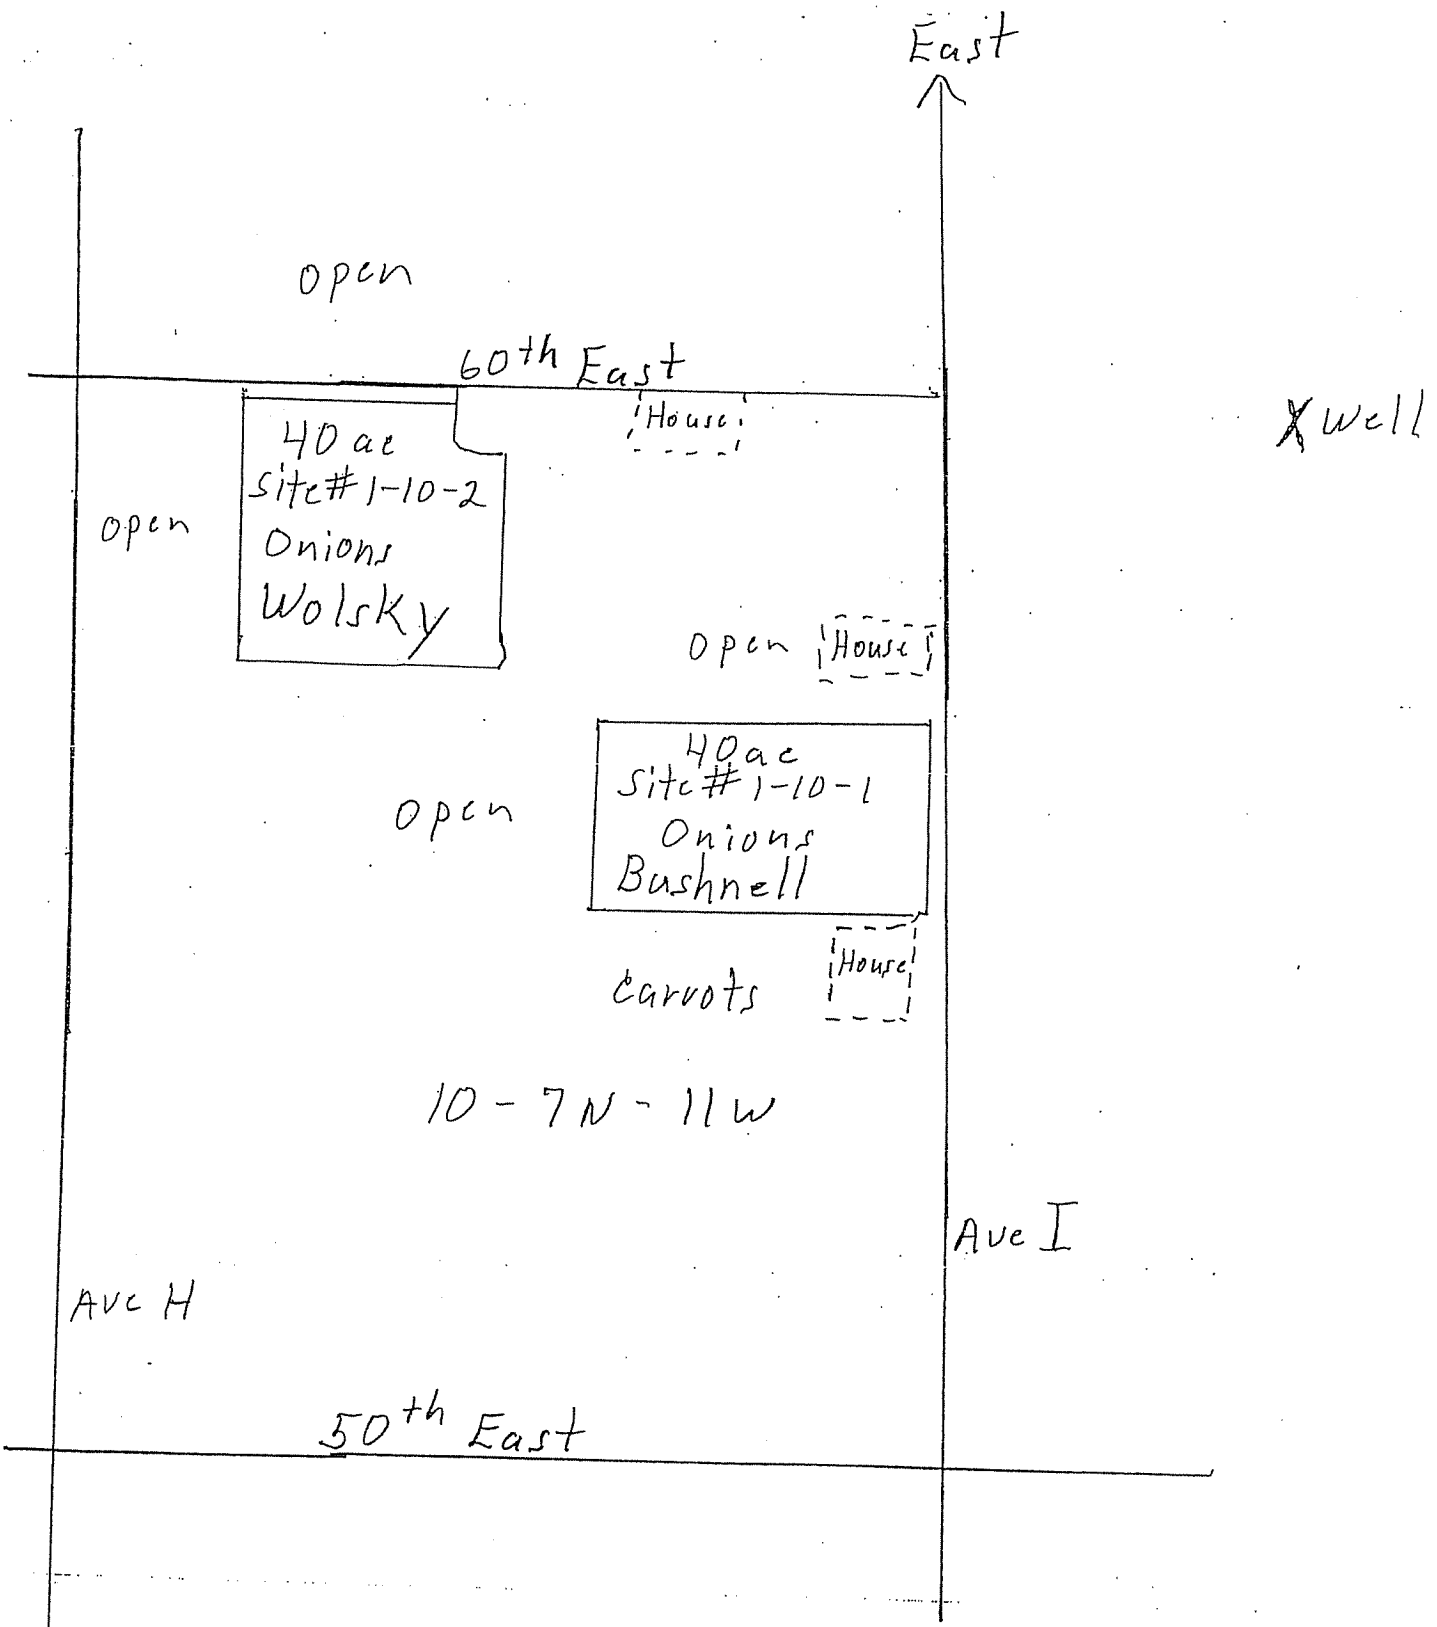 East
open
60th East
House
X Well
40 ac
Site# 1-10-2
Onions
Wolsky
open
open
House
40 ac
Site# 1-10-1
Onions
Bushnell
open
House
Carrots
10-7N-11W
Ave I
Ave H
50th East